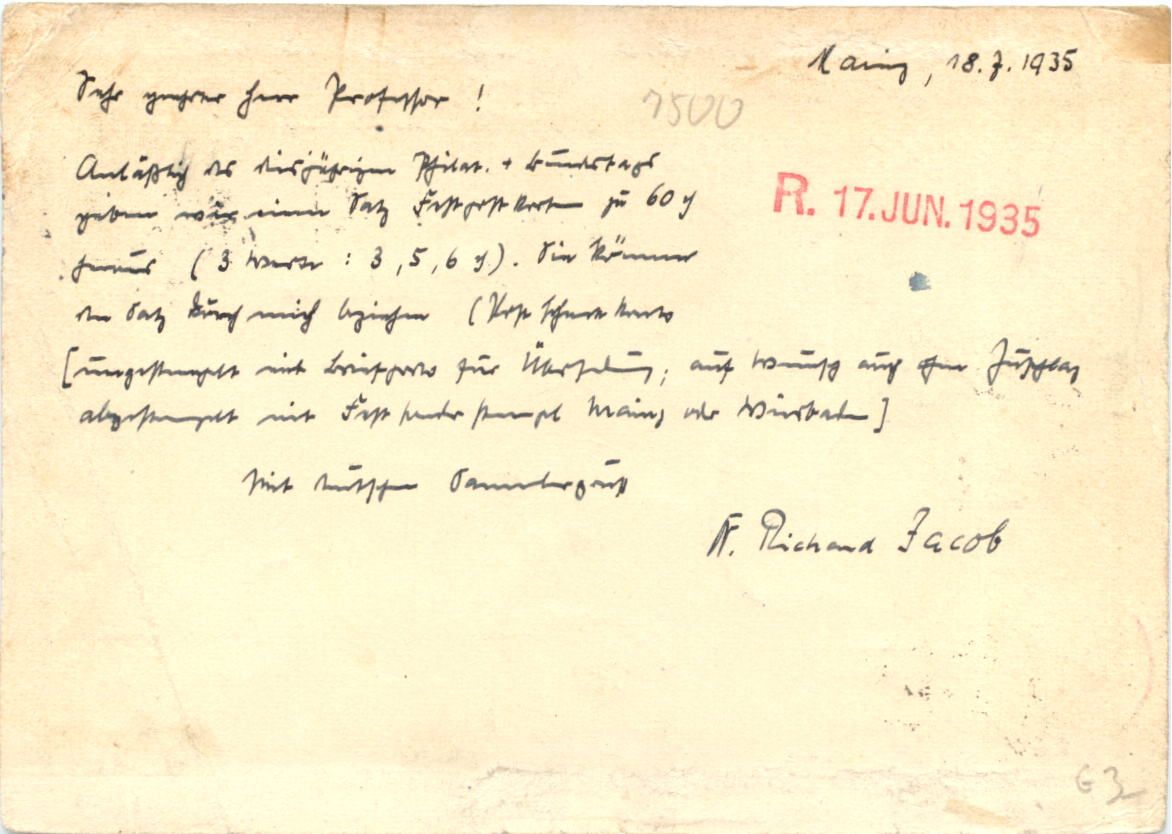 Mainz, 18.7.1935
Sehr geehrter Herr Professor!
7500
Anläßlich des diesjährigen Philat. + Bundestags
geben wir einen Satz Festpostkarten zu 60 ₰
R. 17. JUN. 1935
heraus (3 Werte: 3, 5, 6 ₰). Sie können
den Satz durch mich beziehen (Postscheckkonto
[ungestempelt mit Briefporto für Übersendung; auf Wunsch auch ohne Zuschlag
abgestempelt mit Festsonderstempel Mainz oder Wiesbaden]
Mit deutschem Sammlergruß
Richard Jacob
G 3